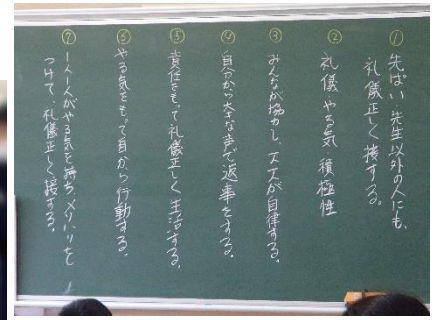 ①
先ぱい、先生以外の人にも、
礼儀正しく接する。
②
礼儀・やる気・積極性
③
みんなが協力し、一人一人が自律する。
④
自分から大きな声で返事をする。
⑤
責任をもって礼儀正しく生活する。
⑥
やる気をもって自から行動する。
⑦
一人一人がやる気を持ち、メリハリを
つけて、礼儀正しく接する。